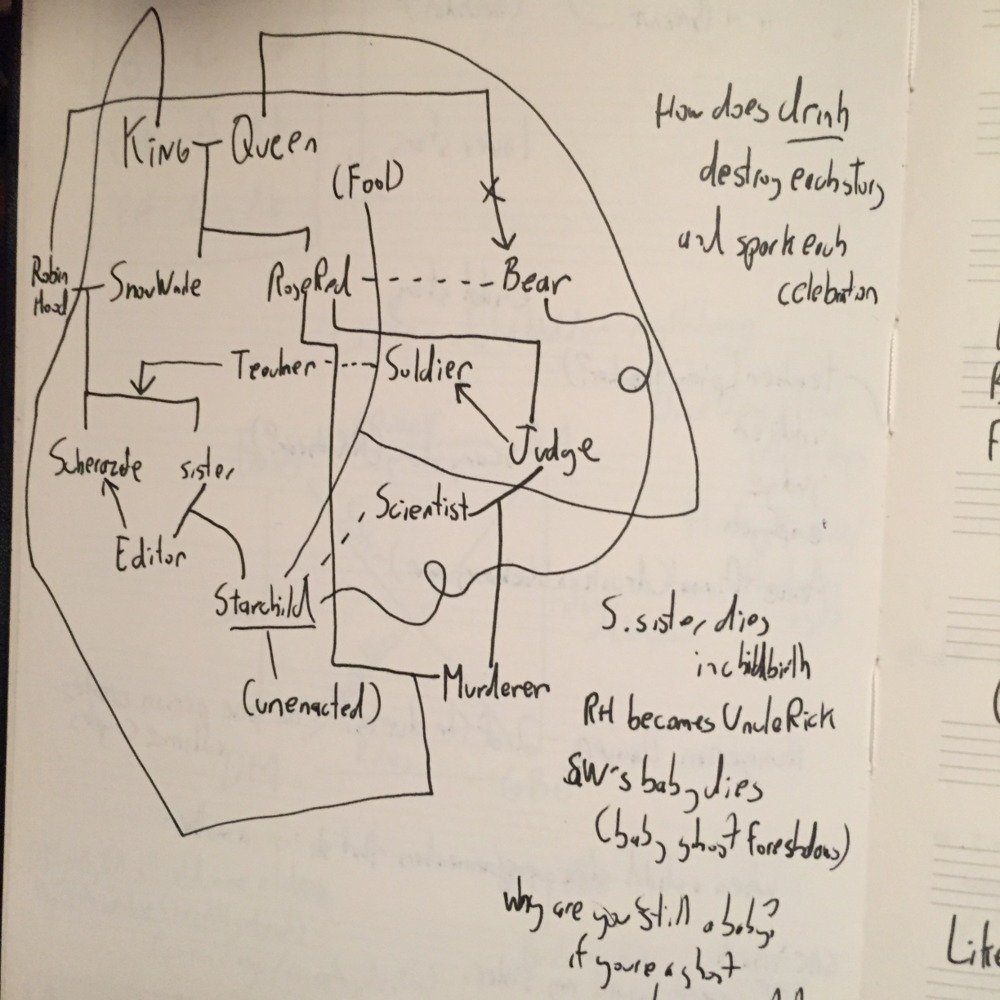 King Queen
(Fool)
Robin
Hood
SnowWhite
RoseRed
Bear
Teacher
Soldier
Scherazde
sister
Judge
Scientist
Editor
Starchild
(unenacted)
Murderer
How does drink
destroy each story
and spark each
celebration
S. sister dies
in childbirth
RH becomes Uncle Rick
SW's baby dies
(baby ghost foreshadows)
Why are you still a baby?
if you're a ghost
Like